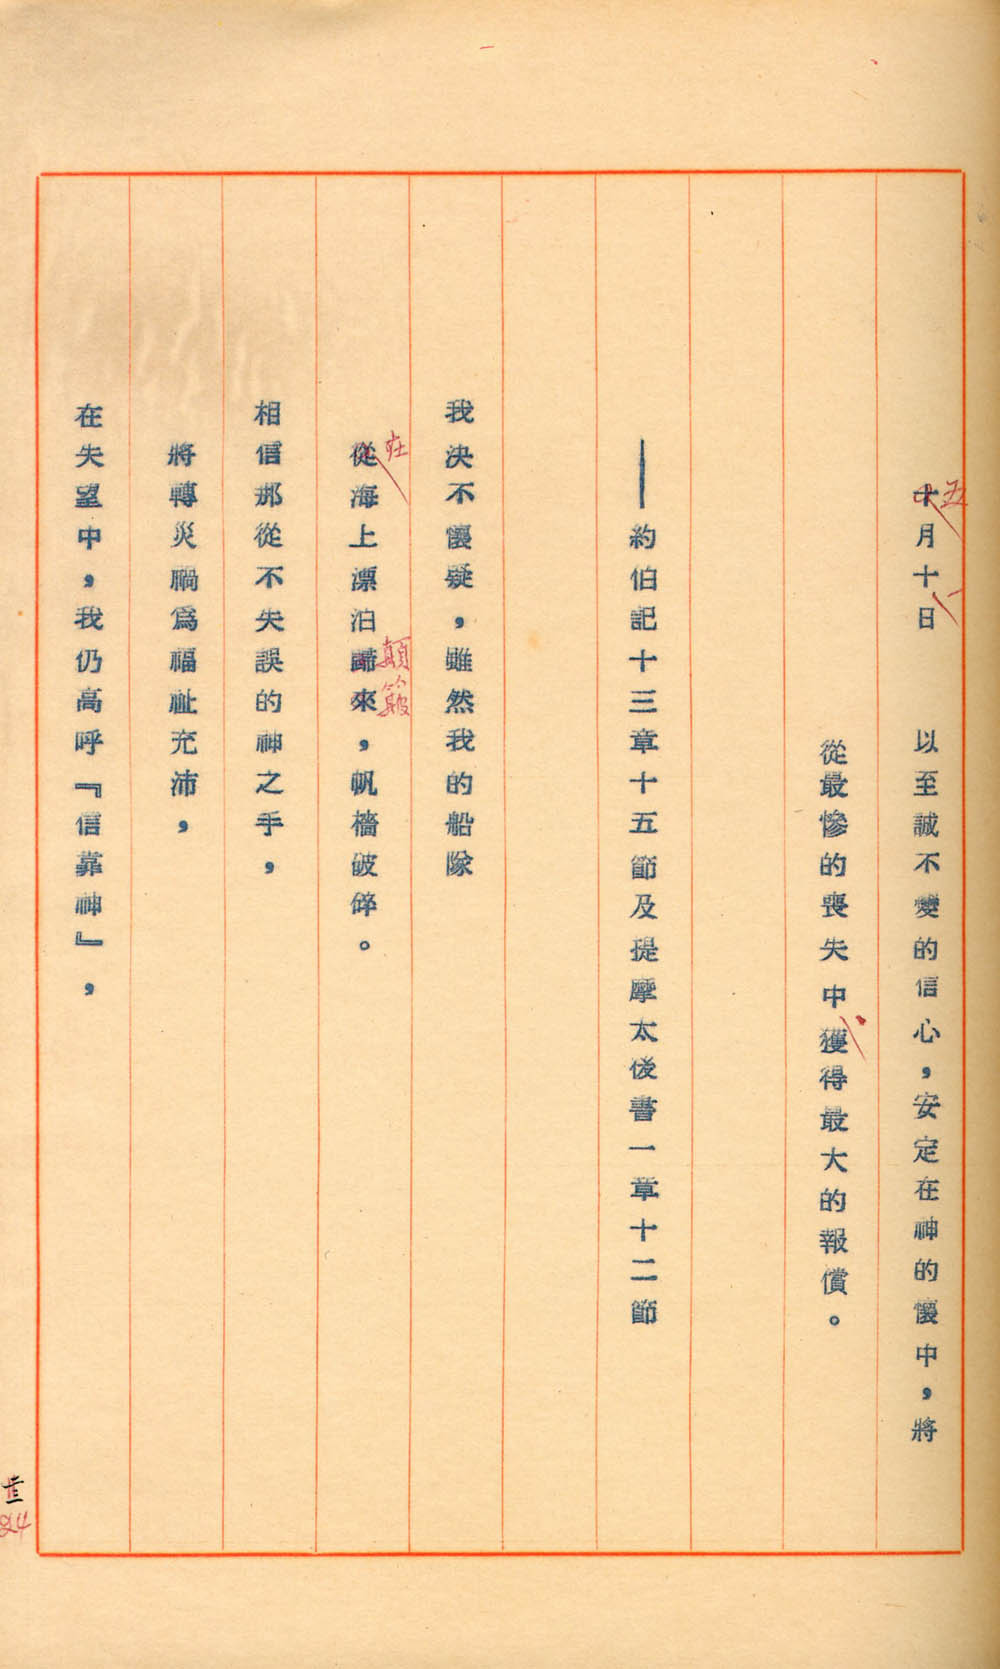 十月十日　　以至誠不變的信心，安定在神的懷中，將
五
一
從最慘的喪失中獲得最大的報償。
——約伯記十三章十五節及提摩太後書一章十二節
我決不懷疑，雖然我的船隊
從海上漂泊歸來，帆檣破碎。
在
顛簸
相信那從不失誤的神之手，
將轉災禍爲福祉充沛，
在失望中，我仍高呼『信靠神』，
24